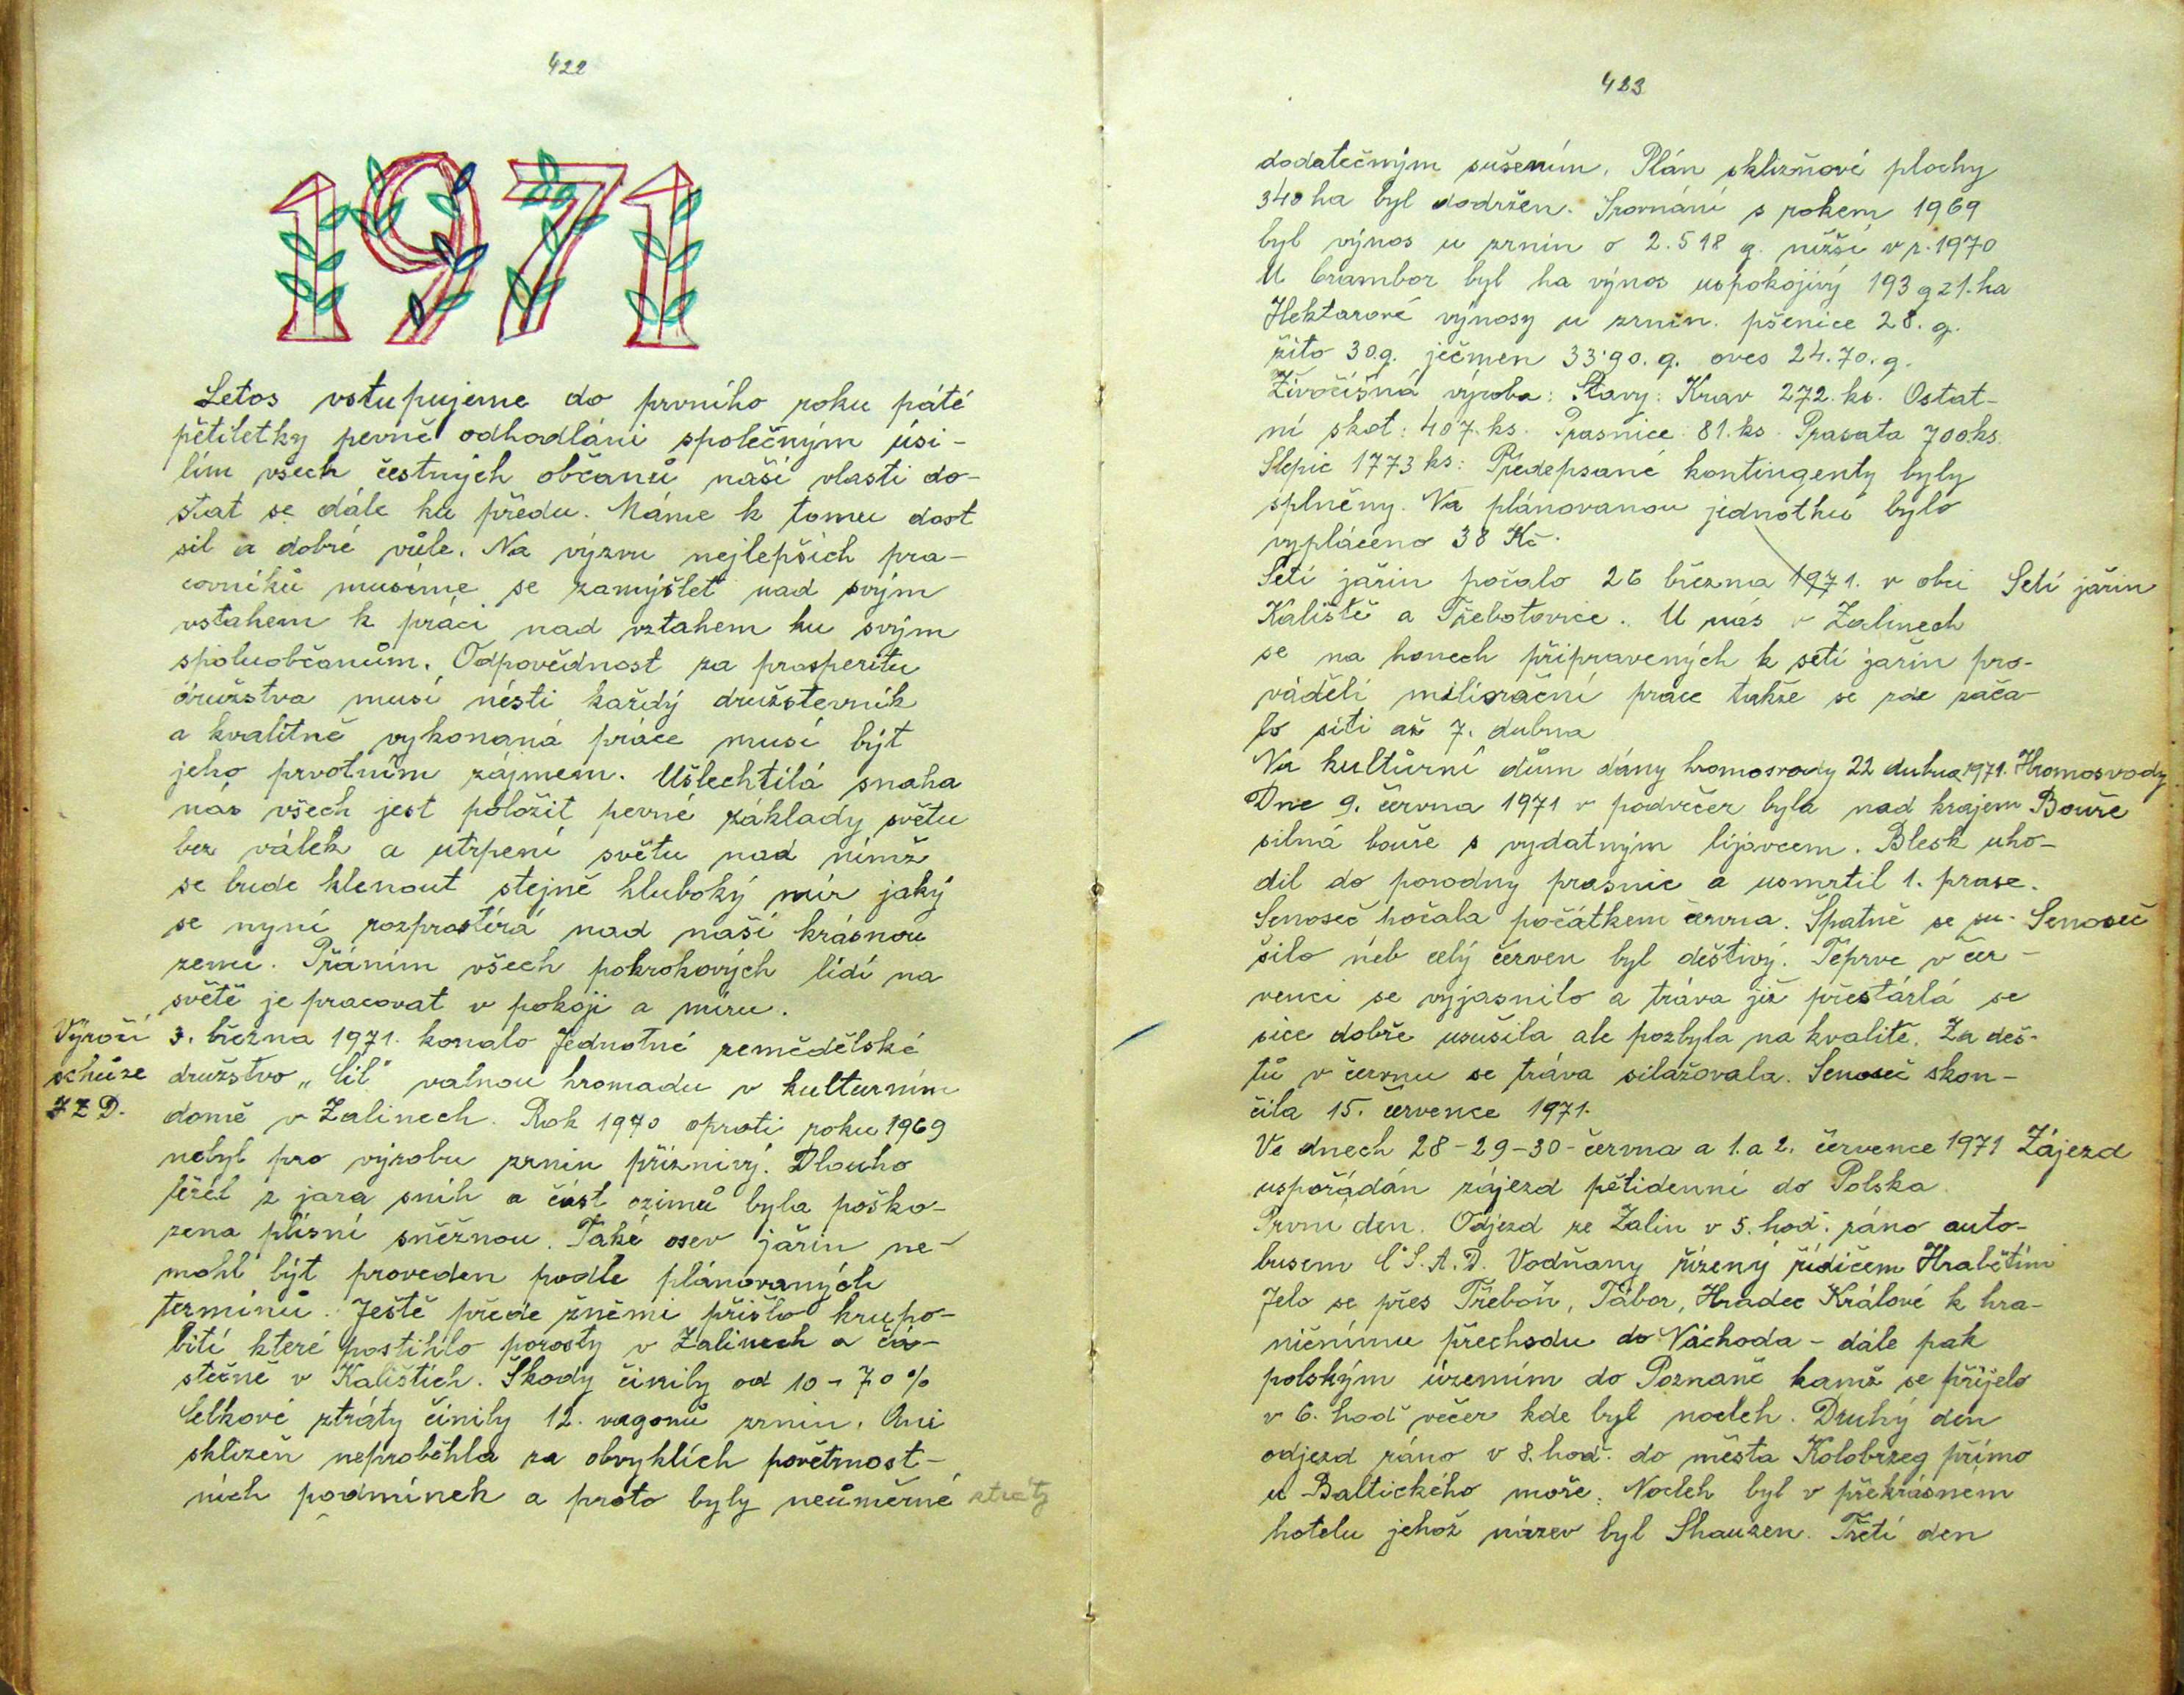 422
1971
Letos vstupujeme do prvního roku páté
pětiletky pevně odhodláni společným úsi-
lím všech čestných občanů naší vlasti do-
stat se dále ku předu. Máme k tomu dost
sil a dobré vůle. Na výzvu nejlepších pra-
covníků musíme se zamýšlet nad svým
vstahem k práci nad vztahem ku svým
spoluobčanům. Odpovědnost za prosperitu
družstva musí nésti každý družstevník
a kvalitně vykonaná práce musí být
jeho prvotním zájmem. Ušlechtilá snaha
nás všech jest položit pevné základy světu
bez válek a utrpení světu nad nímž
se bude klenout stejně hluboký mír jaký
se nyní rozprostírá nad naší krásnou
zemí. Přáním všech pokrokových lidí na
světě je pracovat v pokoji a míru.
Výroční schůze J Z D.
3. března 1971. konalo Jednotné zemědělské
družstvo „Cíl" valnou hromadu v kulturním
domě v Zalinech. Rok 1970 oproti roku 1969
nebyl pro výrobu zrnin příznivý. Dlouho
ležel z jara sníh a část ozimů byla poško-
zena plísní sněžnou. Také osev jařin ne-
mohl být proveden podle plánovaných
termínů. Ještě přede žněmi přišlo krupo-
bití které postihlo porosty v Zalinech a čá-
stečně v Kalištích. Škody činily od 10 - 70 %
Celkové ztráty činily 12. vagonů zrnin. Ani
sklizeň neproběhla za obvyklích povětrnost-
ních podmínek a proto byly neúměrné ztráty
423
dodatečným sušením. Plán sklizňové plochy
340 ha byl dodržen. Srovnání s rokem 1969
byl výnos u zrnin o 2.518 q. nižší v r. 1970
U brambor byl ha výnos uspokojivý 193 q z 1. ha
Hektarové výnosy u zrnin. pšenice 28. q.
žito 30.q. ječmen 33·90. q. oves 24.70. q.
Živočišná výroba: Stavy: Krav 272. ks. Ostat-
ní skot: 407. ks. Prasnice 81. ks. Prasata 700 ks.
Slepic 1773 ks: Předepsané kontingenty byly
splněny. Na plánovanou jednotku bylo
vypláceno 38 Kč.
Setí jařin počalo 26 března 1971. v obci
Setí jařin
Kaliště a Třebotovice. U nás v Zalinech
se na honech připravených k setí jařin pro-
váděli milirační práce takže se zde zača-
lo síti až 7. dubna
Na kulturní dům dány hromosvody 22 dubna 1971.
Hromosvody
Dne 9. června 1971 v podvečer byla nad krajem
Bouře
silná bouře s vydatným lijavcem. Blesk uho-
dil do porodny prasnic a usmrtil 1. prase.
Senoseč počala počátkem června. Špatně se su-
Senoseč
šilo neb celý červen byl deštivý. Teprve v čer-
venci se vyjasnilo a tráva již přestárlá se
sice dobře usušila ale pozbyla na kvalitě. Za deš-
tů v červnu se tráva silažovala. Senoseč skon-
čila 15. července 1971.
Ve dnech 28-29-30-června a 1. a 2. července 1971
Zájezd
uspořádán zájezd pětidenní do Polska.
První den. Odjezd ze Zalin v 5. hod. ráno auto-
busem Č.S.A.D. Vodňany řízený řidičem Hrabětím
Jelo se přes Třeboň, Tábor, Hradec Králové k hra-
ničnímu přechodu do Náchoda - dále pak
polským územím do Poznaně kamž se přijelo
v 6. hod večer kde byl nocleh. Druhý den
odjezd ráno v 8. hod. do města Kolobrzeg přímo
u Baltického moře. Nocleh byl v překrásném
hotelu jehož název byl Shauzen. Třetí den